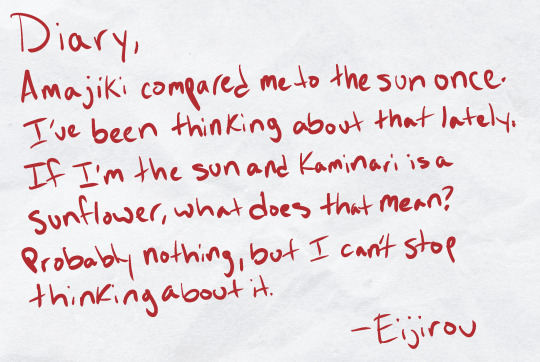 Diary,
Amajiki compared me to the sun once.
I've been thinking about that lately.
If I'm the sun and Kaminari is a
sunflower, what does that mean?
Probably nothing, but I can't stop
thinking about it.
-Eijirou